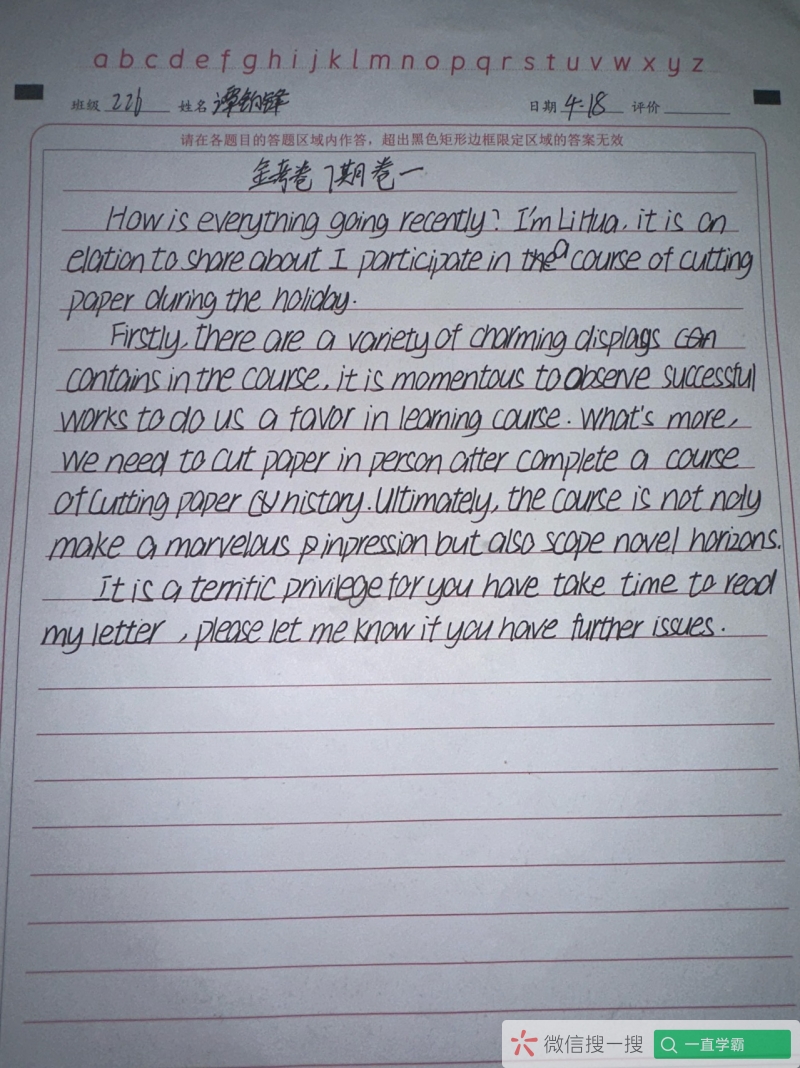 a b c d e f g h i j k l m n o p q r s t u v w x y z
班级 226 姓名 谭钧锋 日期 4.18 评价
请在各题目的答题区域内作答，超出黑色矩形边框限定区域的答案无效
金考卷 7期卷一
How is everything going recently? I'm Li Hua, it is an
elation to share about I participate in the a course of cutting
paper during the holiday.
Firstly, there are a variety of charming displays can
contains in the course, it is momentous to observe successful
works to do us a favor in learning course. What's more,
we need to cut paper in person after complete a course
of cutting paper history. Ultimately, the course is not noly
make a marvelous inpression but also scope novel horizons.
It is a terrific privilege for you have take time to read
my letter, please let me know if you have further issues.
微信搜一搜 一直学霸